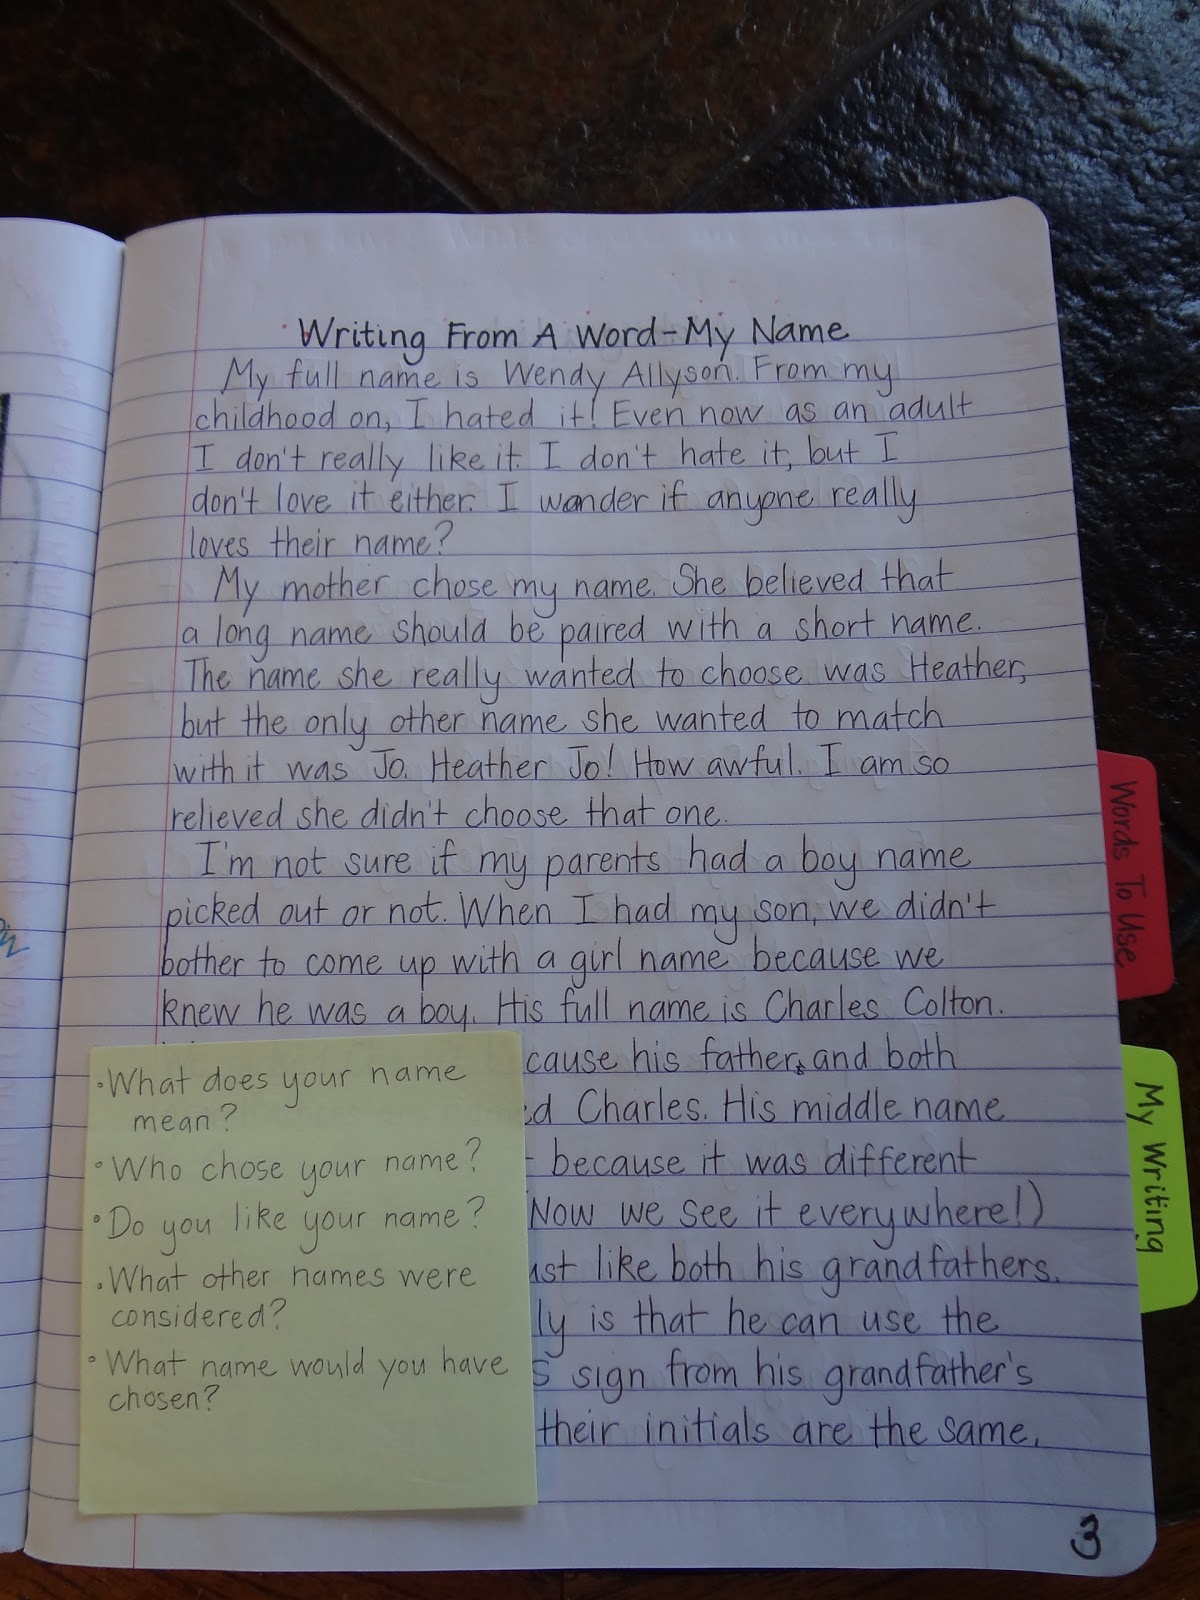 Writing From A Word-My Name
My full name is Wendy Allyson. From my
childhood on, I hated it! Even now as an adult
I don't really like it. I don't hate it, but I
don't love it either. I wonder if anyone really
loves their name?
My mother chose my name. She believed that
a long name should be paired with a short name.
The name she really wanted to choose was Heather,
but the only other name she wanted to match
with it was Jo. Heather Jo! How awful. I am so
relieved she didn't choose that one.
I'm not sure if my parents had a boy name
picked out or not. When I had my son, we didn't
bother to come up with a girl name because we
knew he was a boy. His full name is Charles Colton.
cause his father, and both
d Charles. His middle name
because it was different
(Now we see it everywhere!)
ust like both his grandfathers.
ly is that he can use the
S sign from his grandfather's
their initials are the same.
• What does your name
mean?
• Who chose your name?
• Do you like your name?
• What other names were
considered?
• What name would you have
chosen?
Words To Use
My Writing
3